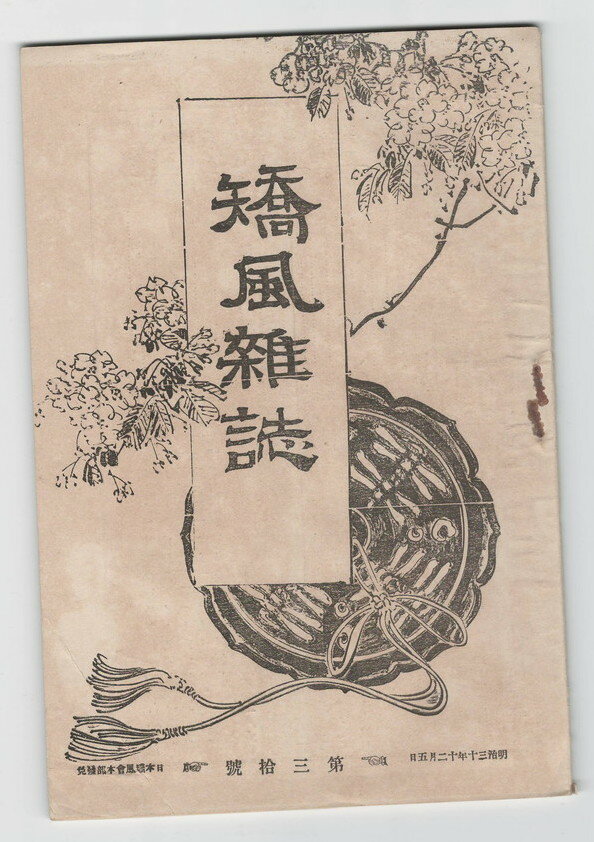 矯風雜誌
明治三十年十二月五日
第三拾號
日本矯風會本部發兌